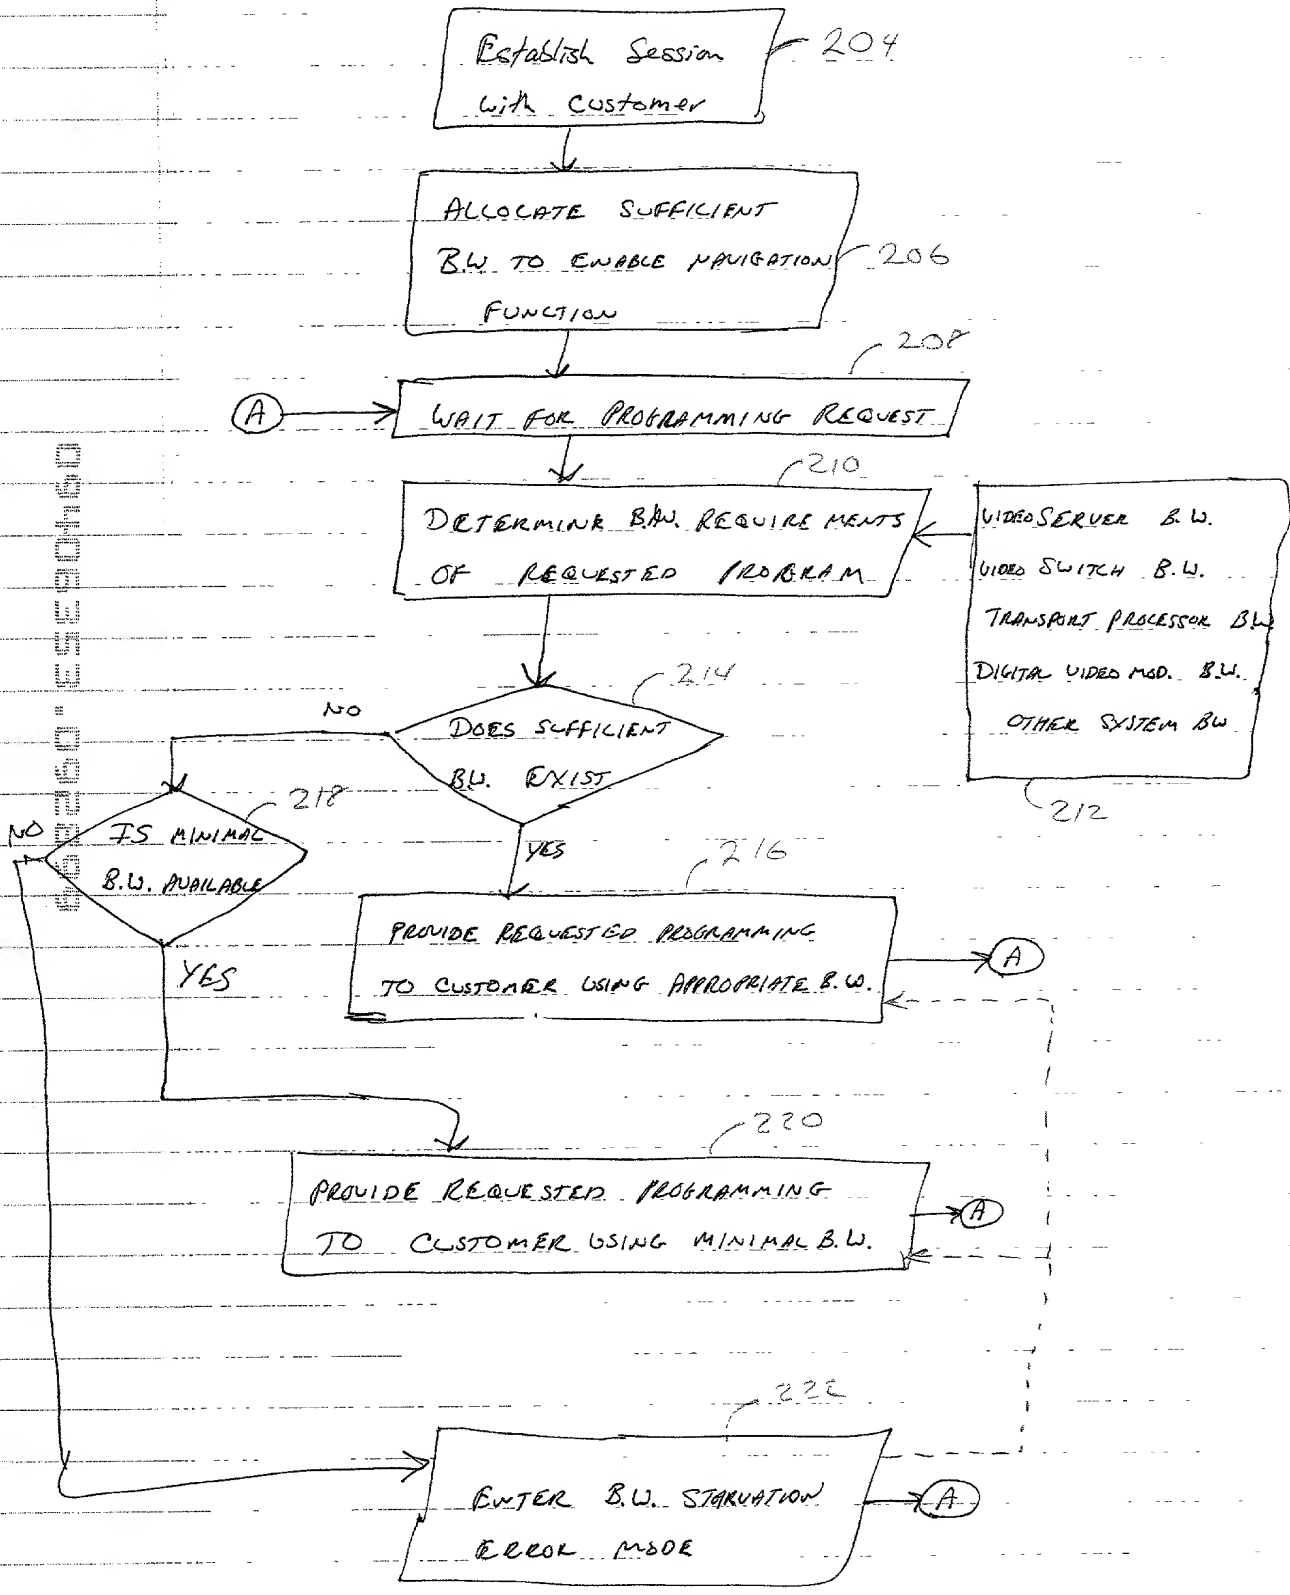 Establish Session
with Customer
204
ALLOCATE SUFFICIENT
B.W TO ENABLE NAVIGATION
FUNCTION
206
208
A
WAIT FOR PROGRAMMING REQUEST
210
DETERMINE B.W. REQUIREMENTS
OF REQUESTED PROGRAM
VIDEO SERVER B.W.
VIDEO SWITCH B.W.
TRANSPORT PROCESSOR BW
DIGITAL VIDEO MOD. B.W.
OTHER SYSTEM BW
212
214
NO
DOES SUFFICIENT
B.W. EXIST
218
NO
IS MINIMAL
B.W. AVAILABLE
YES
216
PROVIDE REQUESTED PROGRAMMING
TO CUSTOMER USING APPROPRIATE B.W.
A
YES
220
PROVIDE REQUESTED PROGRAMMING
TO CUSTOMER USING MINIMAL B.W.
A
222
ENTER B.W. STARVATION
ERROR MODE
A